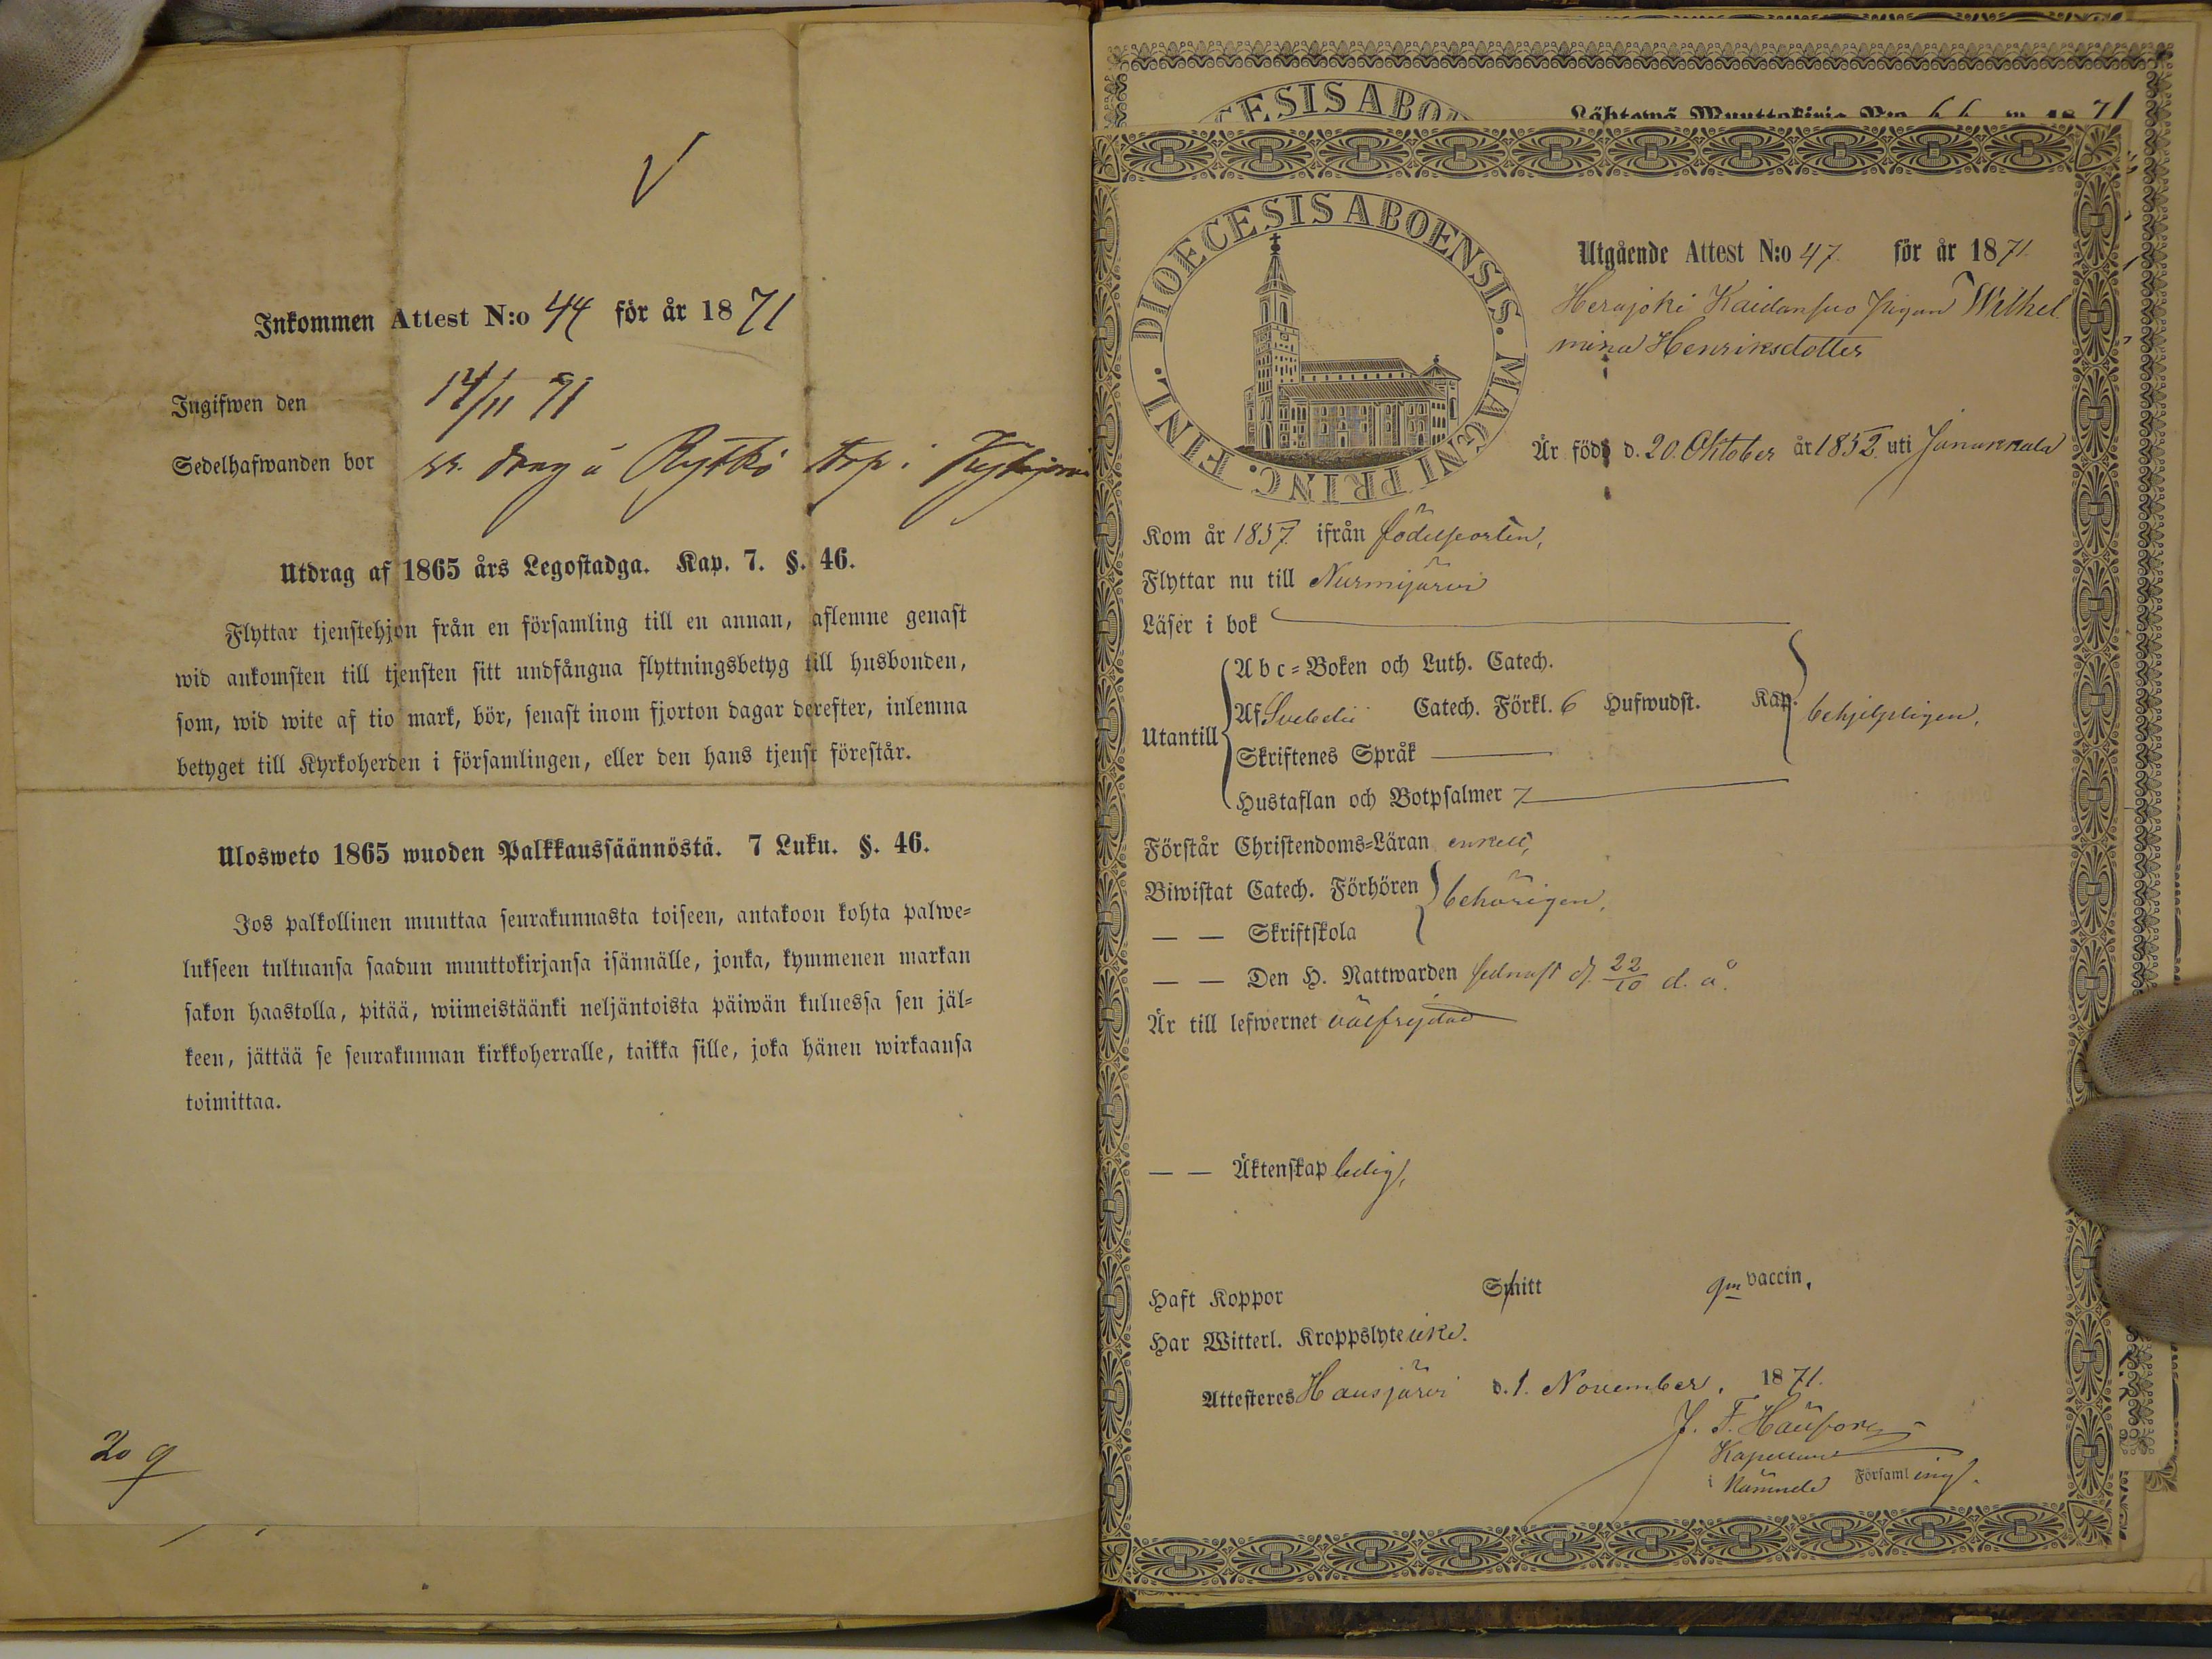 V
Inkommen Attest N:o 44 för år 1871
Ingifwen den 14/11 71
Sedelhafwanden bor
Utdrag af 1865 års Legostadga. Kap. 7. §. 46.
Flyttar tjenstehjon från en församling till en annan, aflemne genast
wid ankomsten till tjensten sitt undfångna flyttningsbetyg till husbonden,
som, wid wite af tio mark, bör, senast inom fjorton dagar derefter, inlemna
betyget till Kyrkoherden i församlingen, eller den hans tjenst förestår.
Ulosweto 1865 wuoden Palkkaussäännöstä. 7 Luku. §. 46.
Jos palkollinen muuttaa seurakunnasta toiseen, antakoon kohta palwe=
lukseen tultuansa saadun muuttokirjansa isännälle, jonka, kymmenen markan
sakon haastolla, pitää, wiimeistäänki neljäntoista päiwän kuluessa sen jäl=
keen, jättää se seurakunnan kirkkoherralle, taikka sille, joka hänen wirkaansa
toimittaa.
20 9
Lähtewä Muuttokirja N:o 66 w. 1871
DIOECESIS ABOENSIS. MAGNI PRINC. FINL.
Utgående Attest N:o 47. för år 1871.
Herajoki Kaidansuo Pigan Wilhel
mina Henriksdotter
Är född d. 20. Oktober år 1852. uti Janakkala
Kom år 1857. ifrån födelseorten,
Flyttar nu till Nurmijärvi
Läser i bok
Abc=Boken och Luth. Catech.
Utantill Af Svebelii Catech. Förkl. 6 Hufwudst. Kap. behjelpligen.
Skriftenes Språk
Hustaflan och Botpsalmer 7
Förstår Christendoms=Läran enkelt,
Biwistat Catech. Förhören behörigen.
— — Skriftskola
— — Den H. Nattwarden sednast d. 22/10 d. å.
Är till lefwernet välfrejdad
— — Äktenskap ledig,
Haft Koppor Smitt gm vaccin.
Har Witterl. Kroppslyte icke.
Attesteres Hausjärvi d. 1. November. 1871.
J. F.
Kapellan
i nämnde Församling.